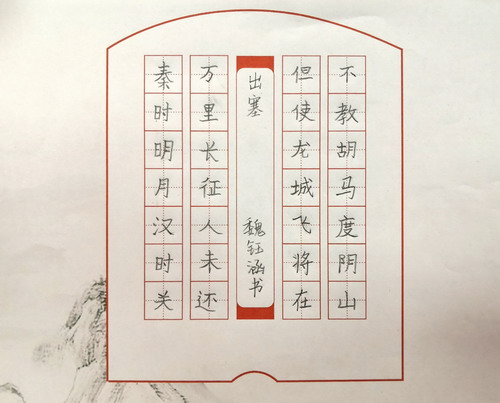 秦时明月汉时关
万里长征人未还
出塞
魏钰涵书
但使龙城飞将在
不教胡马度阴山